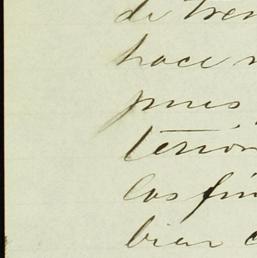 de tren
hace n
pues,
terion
las fin
bien c